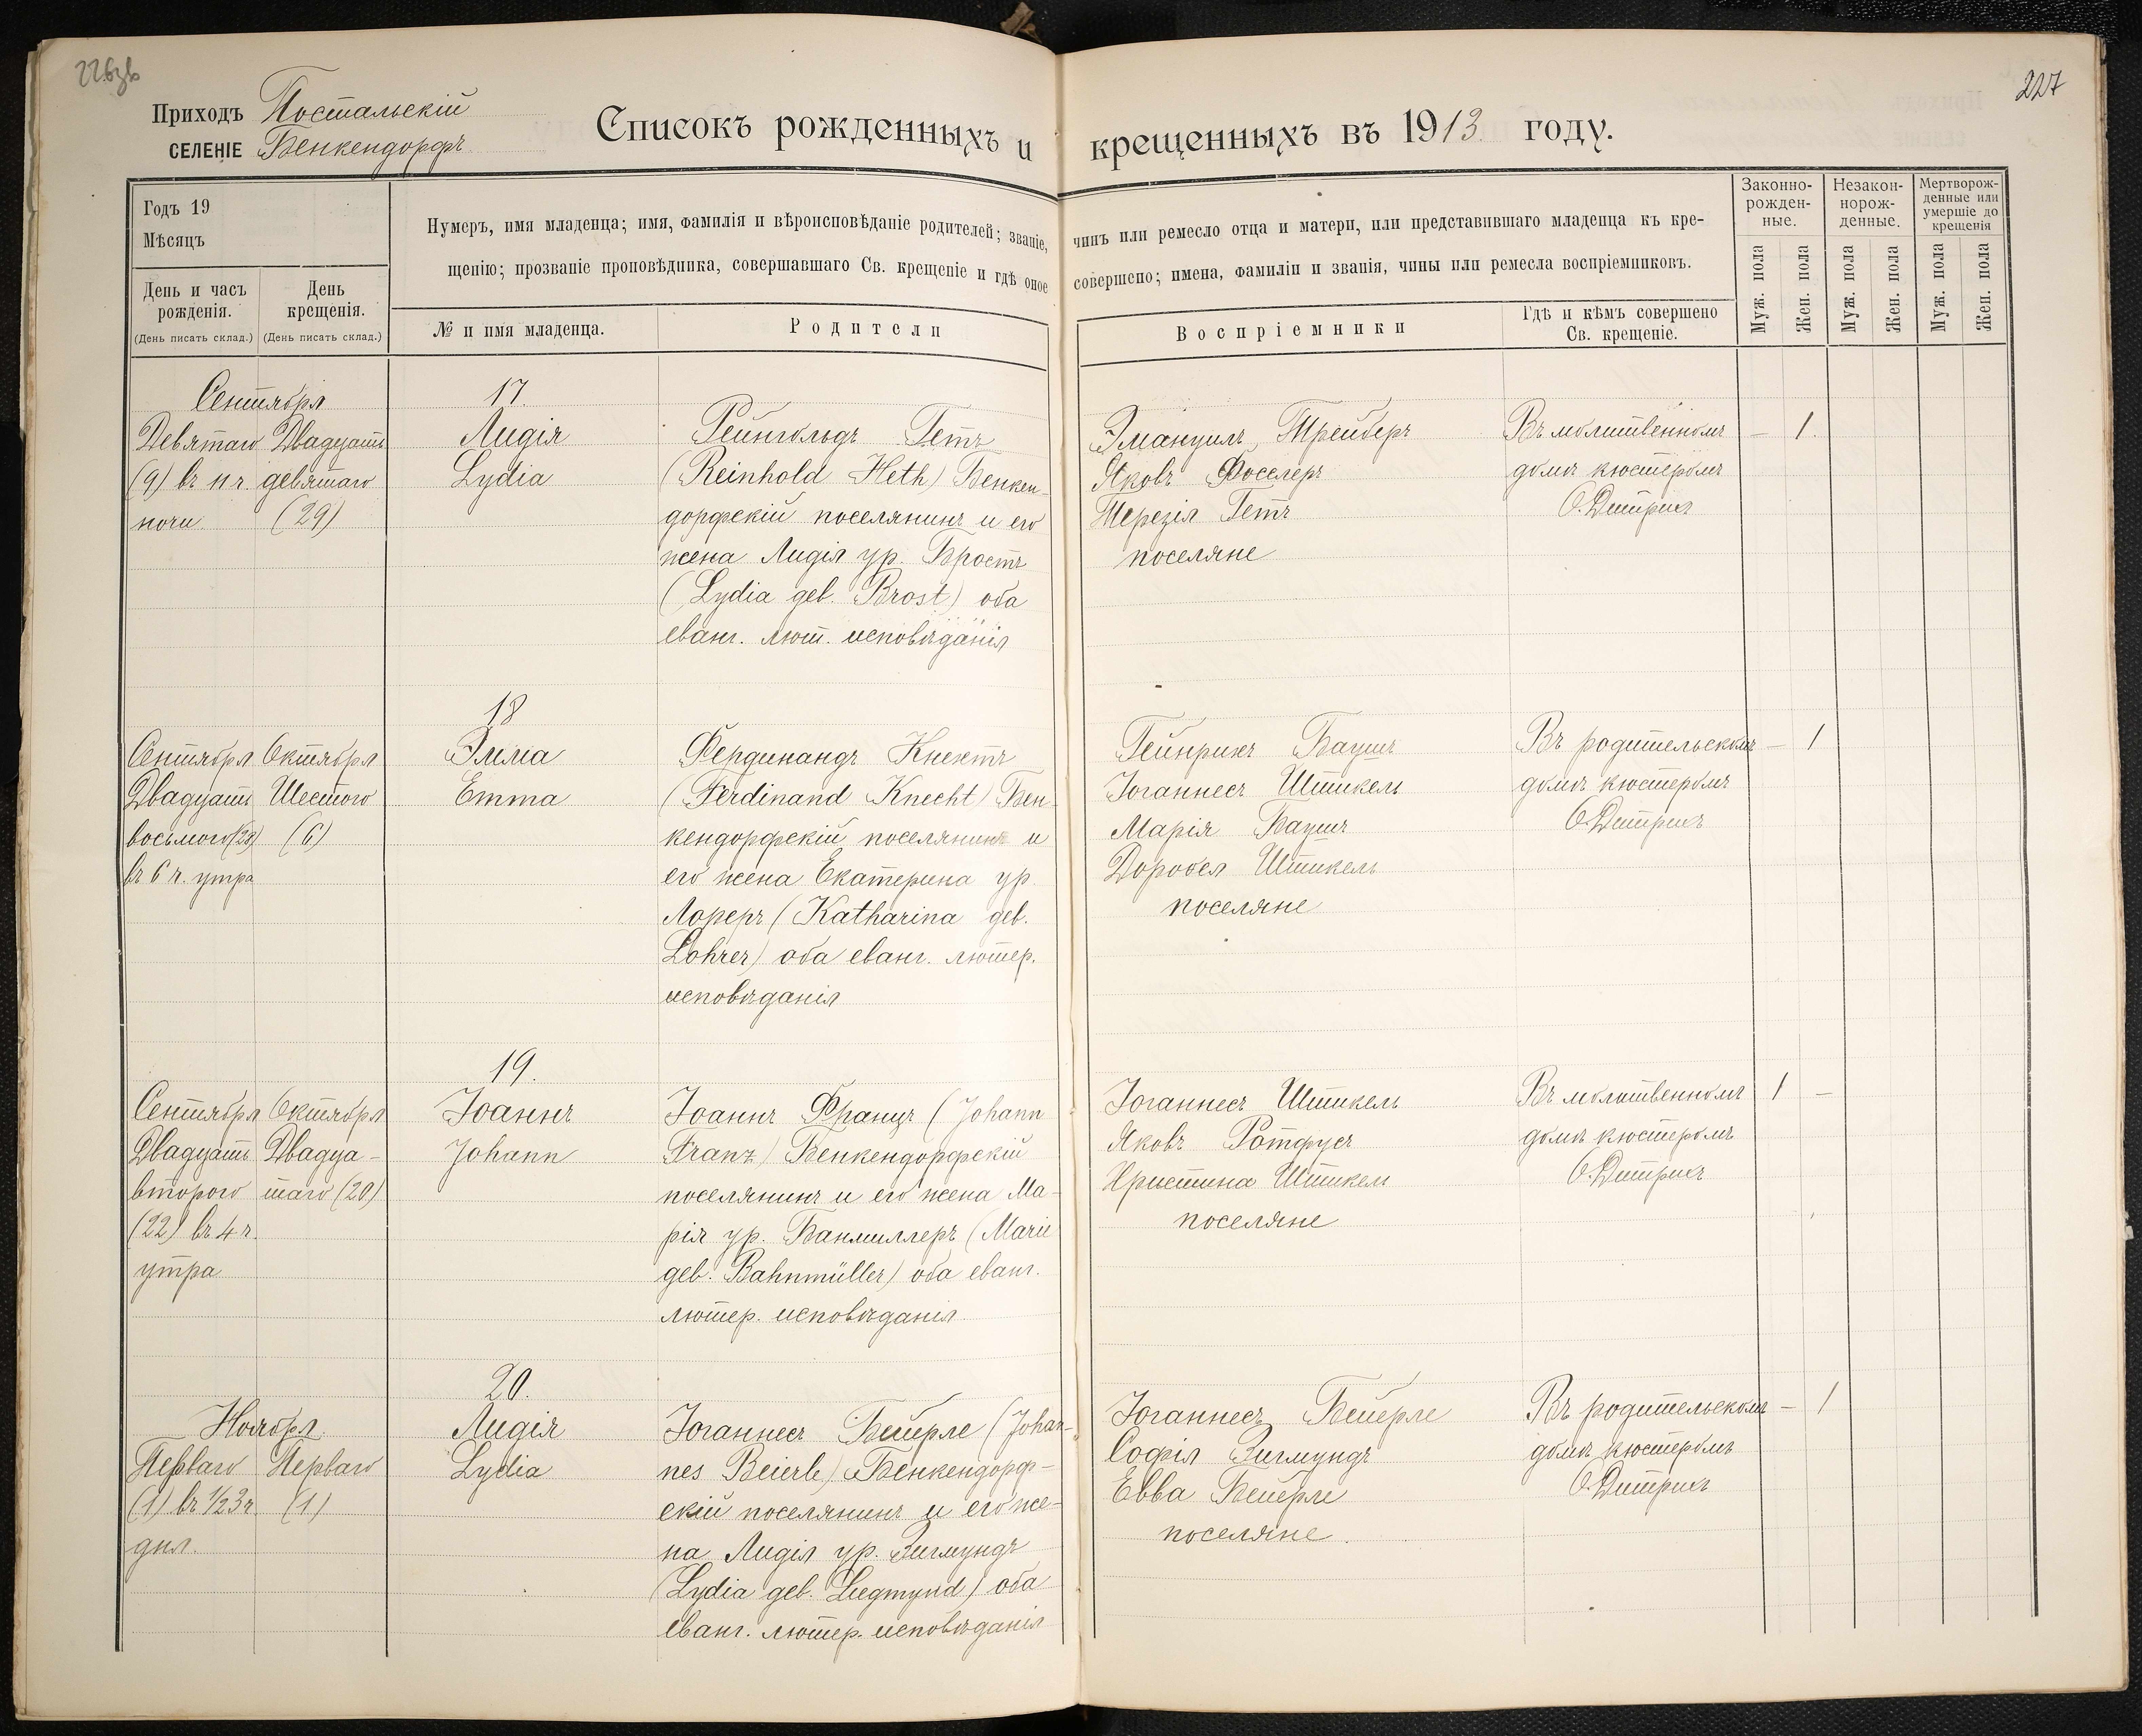 227
Приходъ Постальскій
селеніе Бенкендорфъ
Списокъ рожденныхъ и крещенныхъ въ 1913 году.
Годъ 19
Мѣсяцъ
День и часъ рожденія.
(День писать склад.)
День крещенія.
(День писать склад.)
Нумеръ, имя младенца; имя, фамилія и вѣроисповѣданіе родителей; званіе, чинъ или ремесло отца и матери, или представившаго младенца къ кре-
щенію; прозваніе проповѣдника, совершавшаго Св. крещеніе и гдѣ оное совершено; имена, фамиліи и званія, чины или ремесла воспріемниковъ.
№ и имя младенца.
Родители
Воспріемники
Гдѣ и кѣмъ совершено
Св. крещеніе.
Законно-
рожден-
ные.
Незакон-
норож-
денные.
Мертворож-
денные или
умершіе до
крещенія
Муж. пола
Жен. пола
Муж. пола
Жен. пола
Муж. пола
Жен. пола
Сентября
Девятаго
(9) въ 11 ч.
ночи
Двадцать
девятаго
(29)
17.
Лидія
Lydia
Рейнгольдъ Гетъ
(Reinhold Heth) Бенкен-
дорфскій поселянинъ и его
жена Лидія ур. Бростъ
(Lydia geb. Brost) оба
еванг. лют. исповѣданія
Эмануилъ Трейберъ
Яковъ Фосслеръ
Терезія Гетъ
поселяне
Въ молитвенномъ
домѣ кюстеромъ
О. Дитрихъ
— 1.
Сентября
Двадцать
восьмого (28)
въ 6 ч. утра
Октября
Шестого
(6)
18
Эмма
Emma
Фердинандъ Кнехтъ
(Ferdinand Knecht) Бен-
кендорфскій поселянинъ и
его жена Екатерина ур.
Лореръ (Katharina geb.
Lohrer) оба еванг. лютер.
исповѣданія
Гейнрихъ Баушъ
Іоганнесъ Штикель
Марія Баушъ
Доротея Штикель
поселяне
Въ родительскомъ
домѣ кюстеромъ
О. Дитрихъ
— 1
Сентября
Двадцать
второго
(22) въ 4 ч.
утра
Октября
Двадца-
таго (20)
19.
Іоаннъ
Johann
Іоаннъ Францъ (Johann
Franz) Бенкендорфскій
поселянинъ и его жена Ма-
рія ур. Банмиллеръ (Marie
geb. Bahnmüller) оба еванг.
лютер. исповѣданія
Іоганнесъ Штикель
Яковъ Ротфусъ
Христина Штикель
поселяне
Въ молитвенномъ
домѣ кюстеромъ
О. Дитрихъ
1 —
Ноября
Перваго
(1) въ ½3 ч.
дня.
Перваго
(1)
20.
Лидія
Lydia
Іоганнесъ Бейерле (Johan-
nes Beierle) Бенкендорф-
скій поселянинъ и его же-
на Лидія ур. Зигмундъ
(Lydia geb. Siegmund) оба
еванг. лютер. исповѣданія
Іоганнесъ Бейерле
Софія Зигмундъ
Евва Бейерле
поселяне.
Въ родительскомъ
домѣ кюстеромъ
О. Дитрихъ
— 1